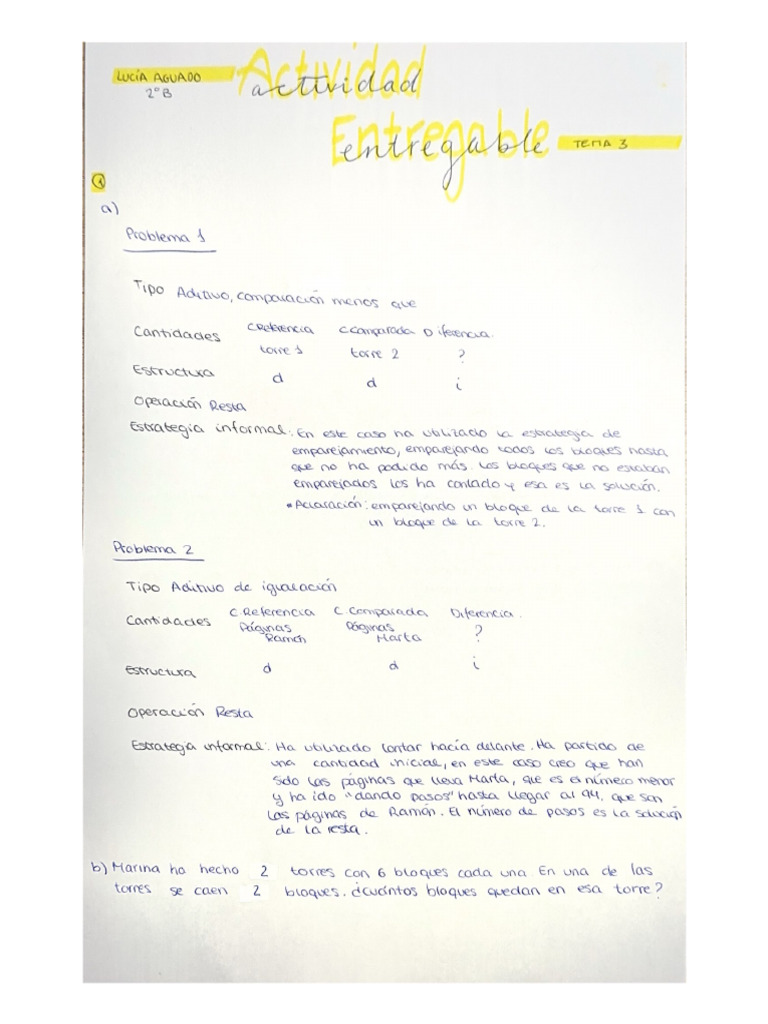 LUCÍA AGUADO
2º B
Actividad
actividad
Entregable
entregable
TEMA 3
1
a)
Problema 1
Tipo Aditivo, comparación menos que
Cantidades C.Referencia C.Comparada Diferencia.
torre 1 torre 2 ?
Estructura d d i
Operación Resta
Estrategia informal: En este caso ha utilizado la estrategia de
emparejamiento, emparejando todos los bloques hasta
que no ha podido más. Los bloques que no estaban
emparejados los ha contado y esa es la solución.
*Aclaración: emparejando un bloque de la torre 1 con
un bloque de la torre 2.
Problema 2
Tipo Aditivo de igualación
Cantidades C.Referencia C.Comparada Diferencia.
Páginas Páginas ?
Ramón Marta
Estructura d d i
Operación Resta
Estrategia informal: Ha utilizado contar hacía delante. Ha partido de
una cantidad inicial, en este caso creo que han
sido las páginas que lleva Marta, que es el número menor
y ha ido "dando pasos" hasta llegar al 94, que son
las páginas de Ramón. El número de pasos es la solución
de la resta.
b) Marina ha hecho 2 torres con 6 bloques cada una. En una de las
torres se caen 2 bloques. ¿Cuántos bloques quedan en esa torre?